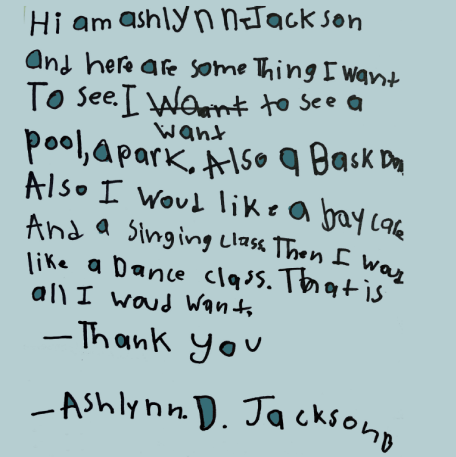 Hi am ashlynn Jackson
And here are some Thing I want
To see. I Woant to see a
want
pool, a park. Also a Bask
Also I woud like a bay care
And a singing class Then I
like a Dance class. That is
all I woud want.
— Thank you
— Ashlynn. D. Jackson